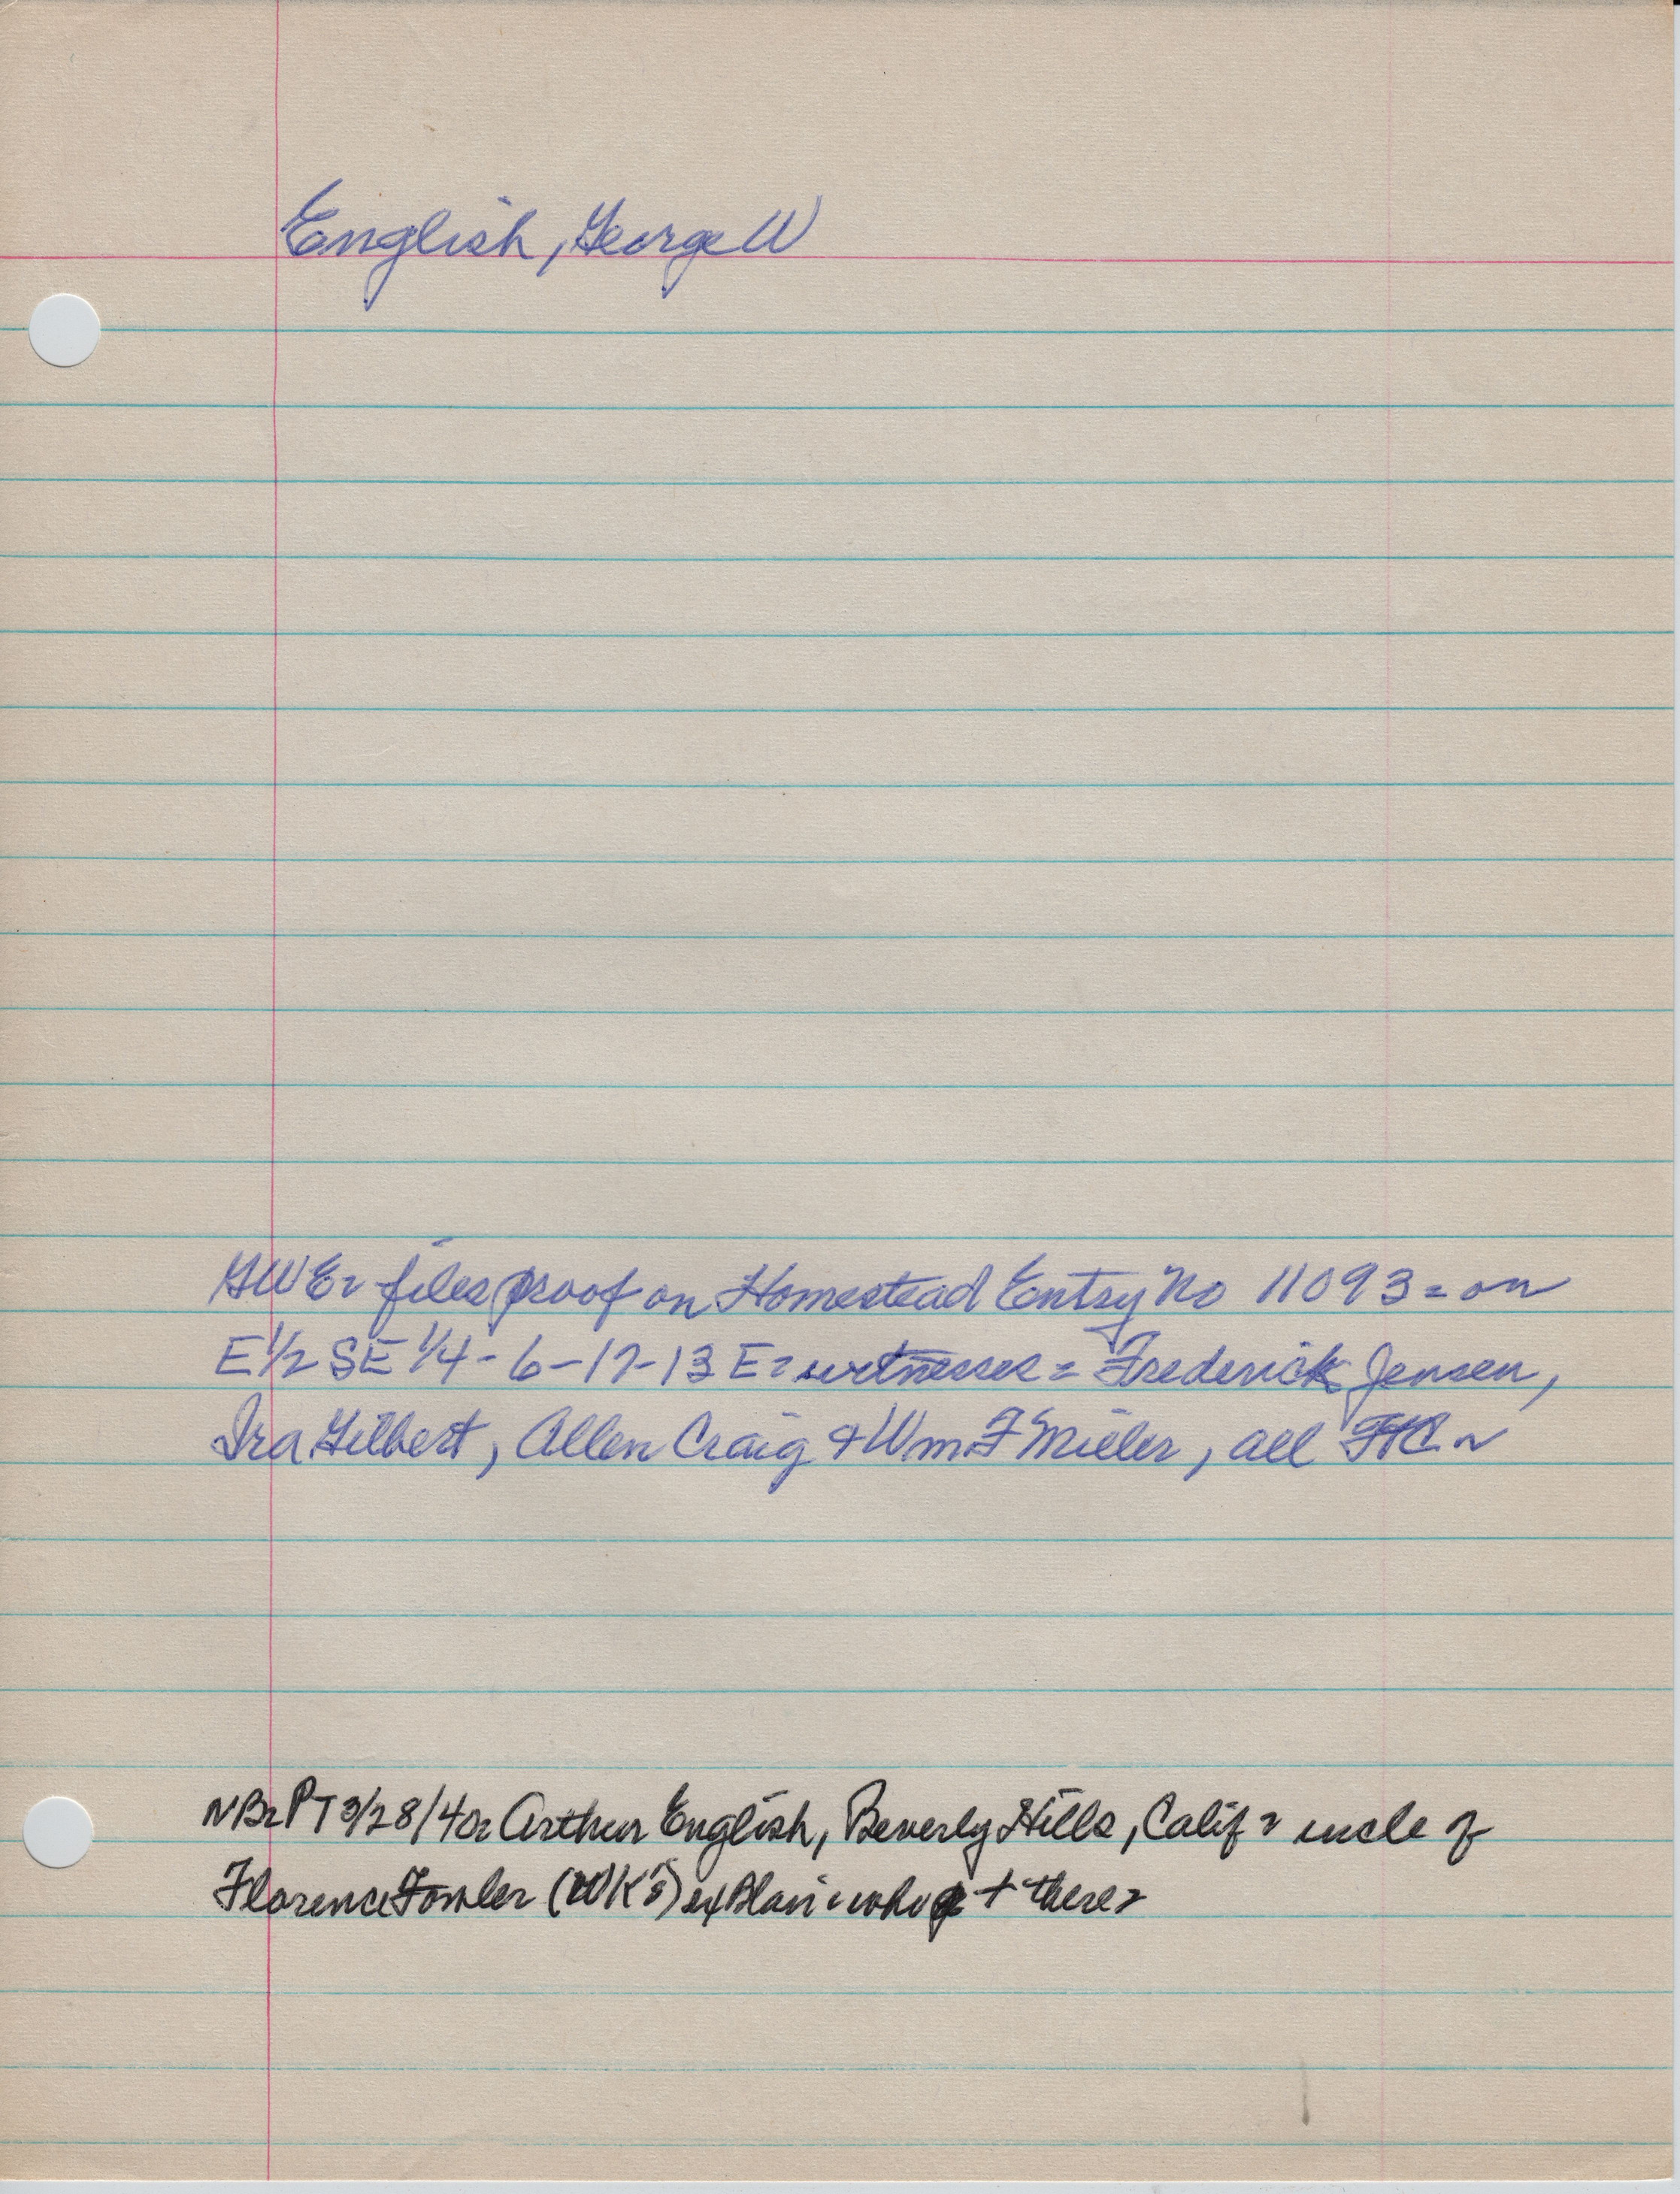 English, George W
GWE= files proof on Homestead Entry No 11093 = on
E 1/2 SE 1/4 - 6-17-13 E = witnesses = Frederick Jensen,
Ira Gilbert, Allen Craig + Wm F Miller, all FtC
NB=PT 3/28/40= Arthur English, Beverly Hills, Calif = uncle of
Florence Fowler (WK's) ex Blair = who + there=